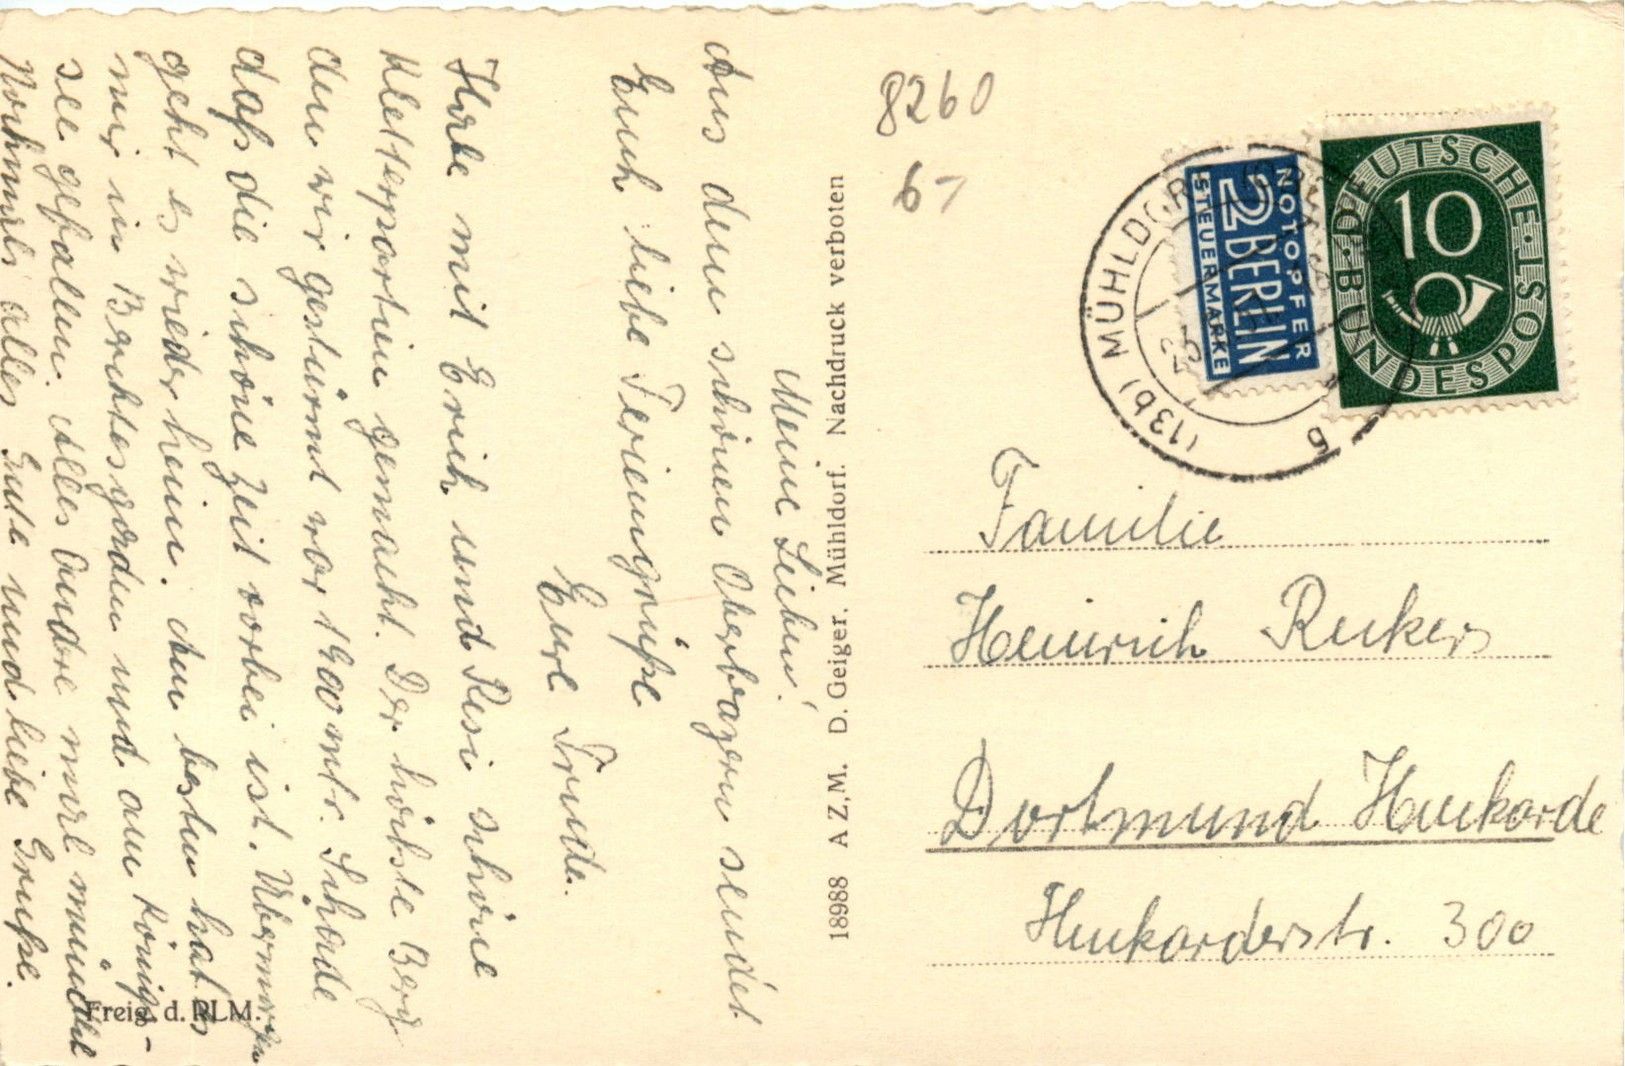 Meine Lieben!
Aus dem schönen Oberbayern sendet
Euch liebe Feriengrüße
Eure Trude.
Habe mit Erich und Resi schöne
Kletterpartien gemacht. Der höchste Berg
den wir gestürmt war 1900 mtr. Schade
daß die schöne Zeit vorbei ist. Übermorgen
geht es wieder heim. Am besten hat es
mir in Berchtesgaden und am Königs-
see gefallen. Alles andere mal mündlich
Nochmals alles Gute und liebe Grüße.
Freig. d. RLM.
18988 A Z,M. D. Geiger, Mühldorf. Nachdruck verboten
8260
6-
(13b) MÜHLDORF
b
NOTOPFER
2 BERLIN
STEUERMARKE
DEUTSCHE BUNDESPOST
10
Familie
Heinrich Reckers
Dortmund Huckarde
Huckarderstr. 300